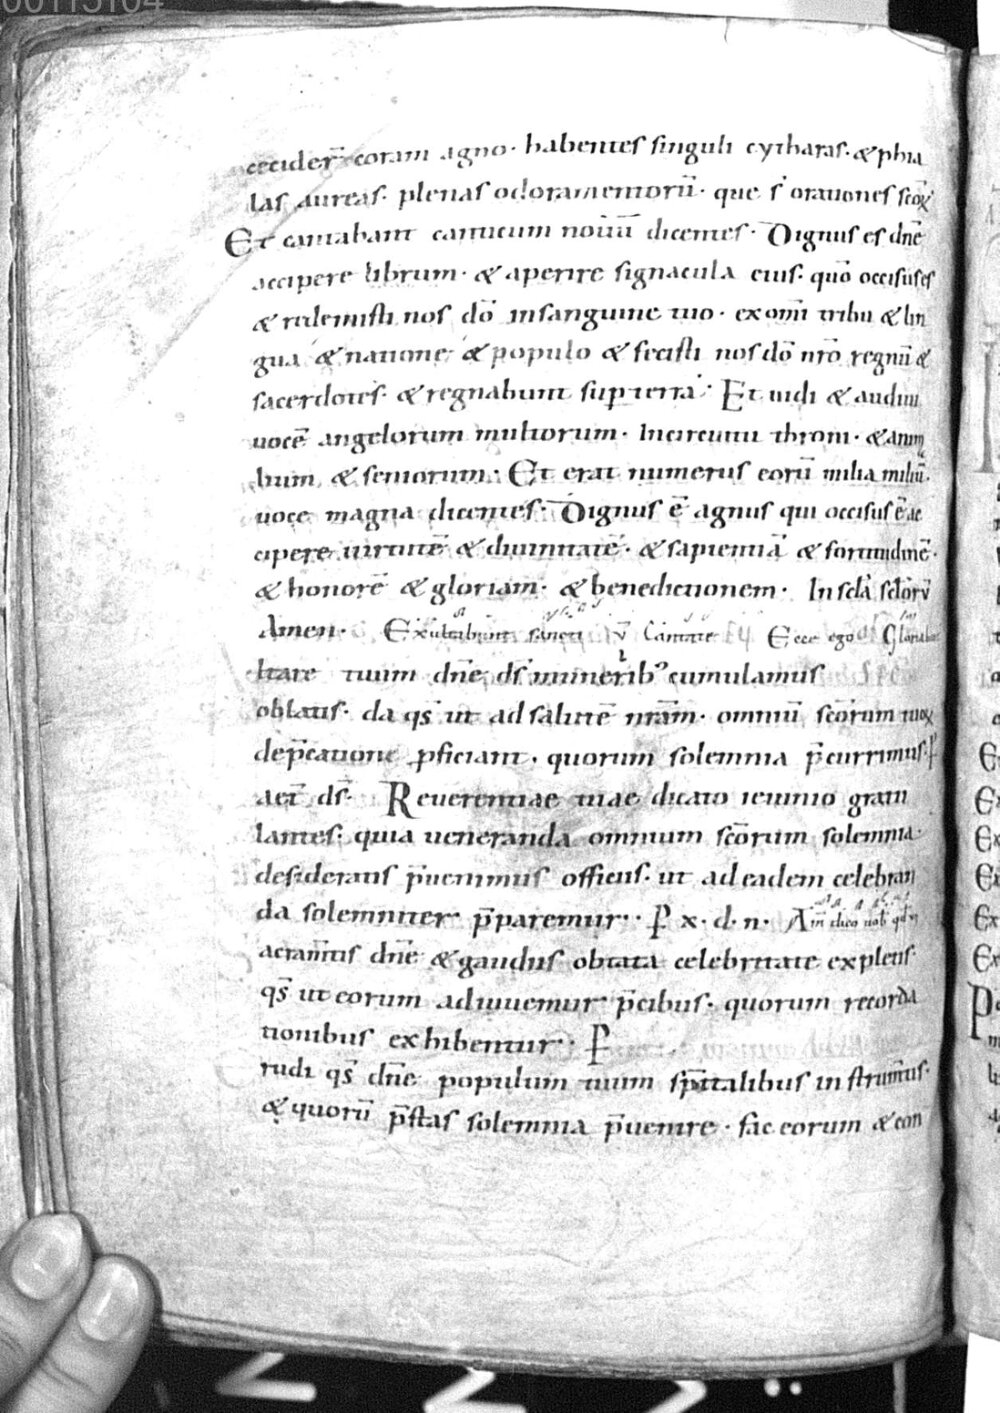 00115104
cecider̄ coram agno· habentes singuli cytharas· & phia
las aureas· plenas odoramentorū· que s̄ orationes scōꝝ
Et cantabant canticum nouū dicentes· Dignus es dn̄e
accipere librum· & aperire signacula eius· quō occisus es
& redemisti nos dō in sanguine tuo· ex omī tribu & lin
gua & natione & populo & fecisti nos dō nr̄o regnū &
sacerdotes· & regnabunt sup terrā· Et uidi & audiui
uocē angelorum multorum· In circuitu throni· & anim
lium & seniorum· Et erat numerus eorū milia miliū·
uoce magna dicentes· Dignus ē agnus qui occisus ē ac
cipere uirtutē & diuinitatē· & sapientiā & fortitudinē·
& honorē & gloriam· & benedictionem· In sc̄la sc̄lorū
Amen· Exultabunt sancti v̄ Cantate Ecce ego Gloriabu
ltare tuum dn̄e ds̄ munerib; cumulamus
oblatis· da qs̄ ut ad salutē nr̄am· omniū scōrum tuoꝝ
dep̄catione ꝓficiant· quorum solemnia p̄currimus· P
aet̄ ds̄· Reuerentiae tuae dicato ieiunio gratu
lantes· quia ueneranda omnium scōrum solemnia
desideratis p̄uenimus officiis· ut ad eadem celebran
da solemniter p̄paremur· P x· d· n· Am̄ dico uob̄ qd
acram̄tis dn̄e & gaudiis obtata celebritate expletis·
qs̄ ut eorum adiuuemur p̄cibus· quorum recorda
tionibus exhibentur· P
rudi qs̄ dn̄e populum tuum sp̄italibus instrum̄tis·
& quorū p̄stas solemnia p̄uenire· fac eorum & con